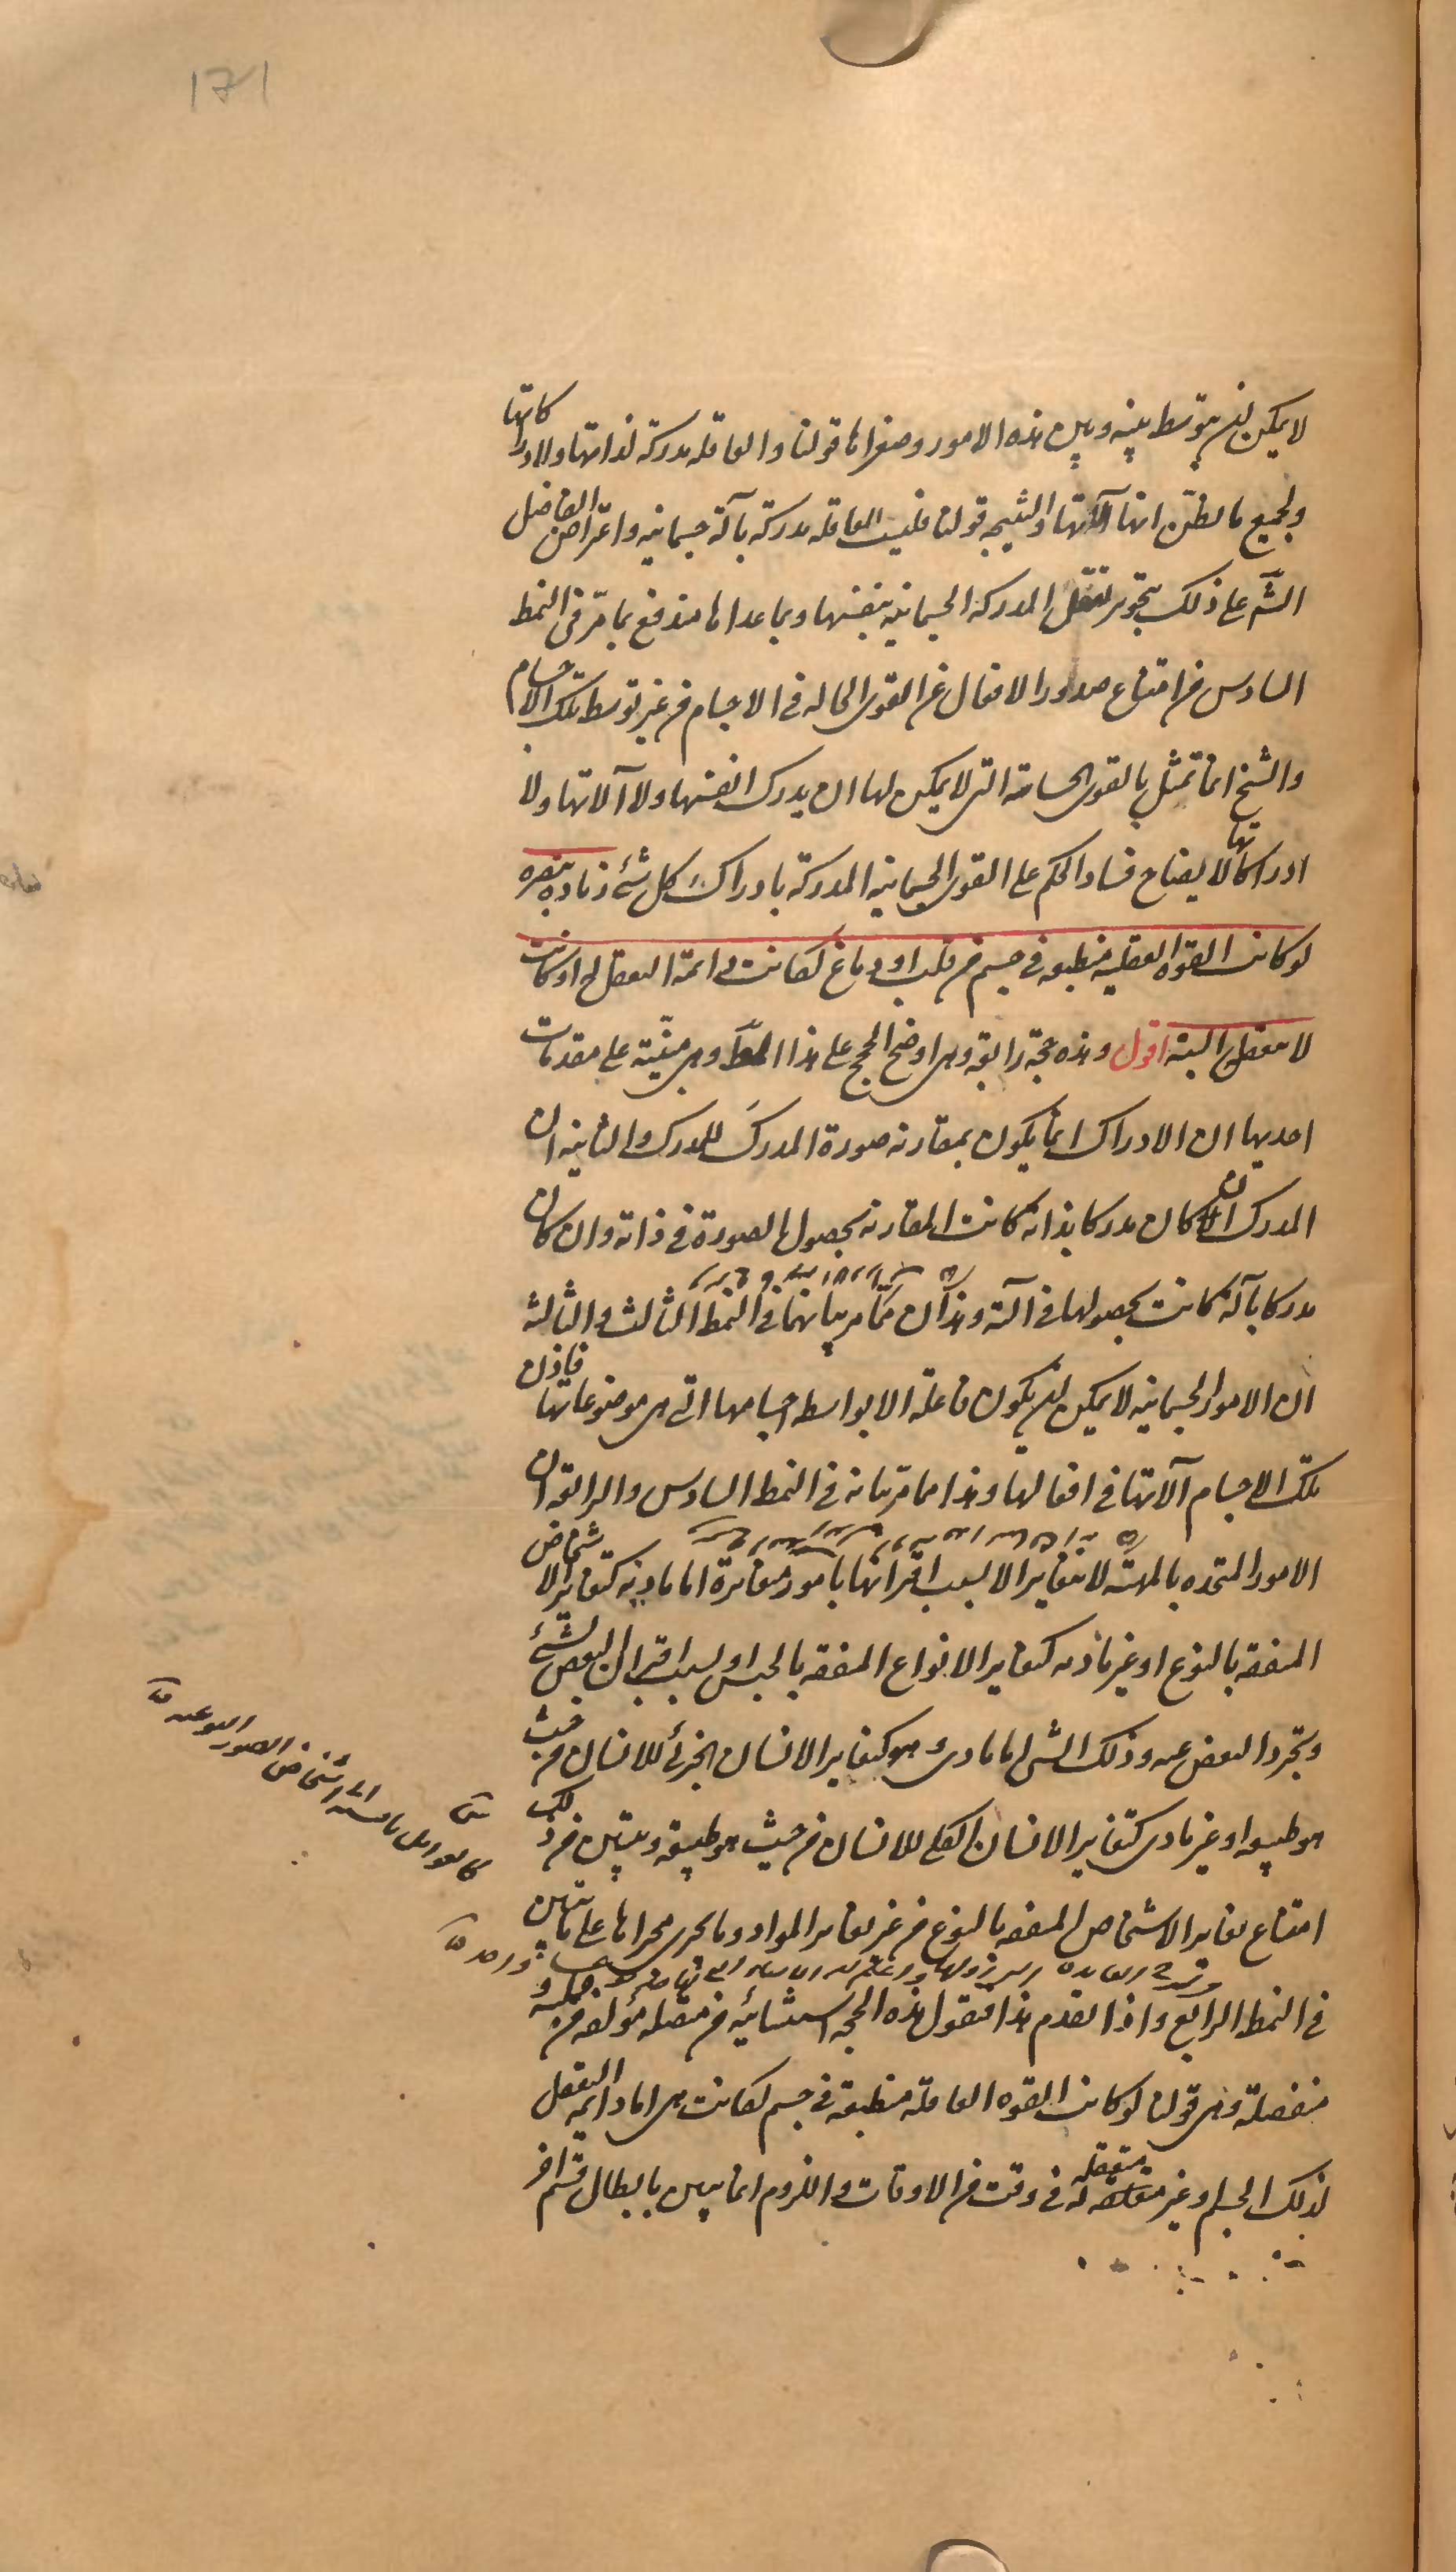 171
لا يمكن ان يتوسط بينه وبين هذه الامور وصغراها قولنا والعاقله مدركة لذاتها ولادراكاتها
ولجميع ما يظن انها آلاتها والنتيجه قولنا فليست العاقله مدركة بآلة جسمانيه واعتراض الفاضل
الشّ على ذلك بتجويز تعقل المدركه الجسمانيه بنفسها وبما عداها مندفع بما مرّ فى النمط
السادس من امتناع صدور الافعال عن القوى الحاله فى الاجسام من غير توسط تلك الاجسام
والشيخ انما تمثل بالقوى الحساسة التى لا يمكن لها ان يدرك انفسها ولا آلاتها ولا
ادراكاتها لايضاح فساد الحكم على القوى الجسمانيه المدركة بادراك كل شئ زيادة تبصره
لو كانت القوه العقليه منطبعه فى جسم من قلب او دماغ لكانت دائمة التعقل له او كانت
لا تتعقل البتة اقول وهذه حجة رابعة وهى اوضح الحجج على هذا المط وهى مبنيّة على مقدمات
احديها ان الادراك انما يكون بمقارنة صورة المدرَك للمدرِك والثانيه ان
المدرك ان كان مدركا بذاته كانت المقارنة بحصول الصورة فى ذاته وان كان
مدركا بآلة كانت بحصولها فى آلته وهذان مما مر بيانهما فى النمط الثالث والثالثه
ان الامور الجسمانيه لا يمكن ان يكون فاعلة الا بواسطه اجسامها التى هى موضوعاتها فاذن
تلك الاجسام آلاتها فى افعالها وهذا مما مر بيانه فى النمط السادس والرابعة ان
الامور المتحده بالمهيّة لا يتغاير الا بسبب اقترانها بامور متغايرة اما ماديه كتغاير الاشخاص
المتفقه بالنوع او غير ماديه كتغاير الانواع المتفقه بالجنس او بسبب اقتران البعض بشئ
وتجرد البعض عنه وذلك الشى اما مادى وهو كتغاير الانسان الجزئى للانسان من حيث
هو طبيعه او غير مادى كتغاير الانسان الكلى للانسان من حيث هو طبيعة ويتبين من ذلك
امتناع تغاير الاشخاص المتفقه بالنوع من غير تغاير المواد وما يجرى مجراها على ما تبين
فى النمط الرابع واذا تقدم هذا فنقول هذه الحجه استثنائيه من متصله مؤلفه من حمليه و
منفصلة وهى قولنا لو كانت القوه العاقلة منطبعة فى جسم لكانت هى اما دائمه التعقل
لذلك الجسم وغير متعقله له فى وقت من الاوقات واللزوم انما يتبين بابطال قسم آخر